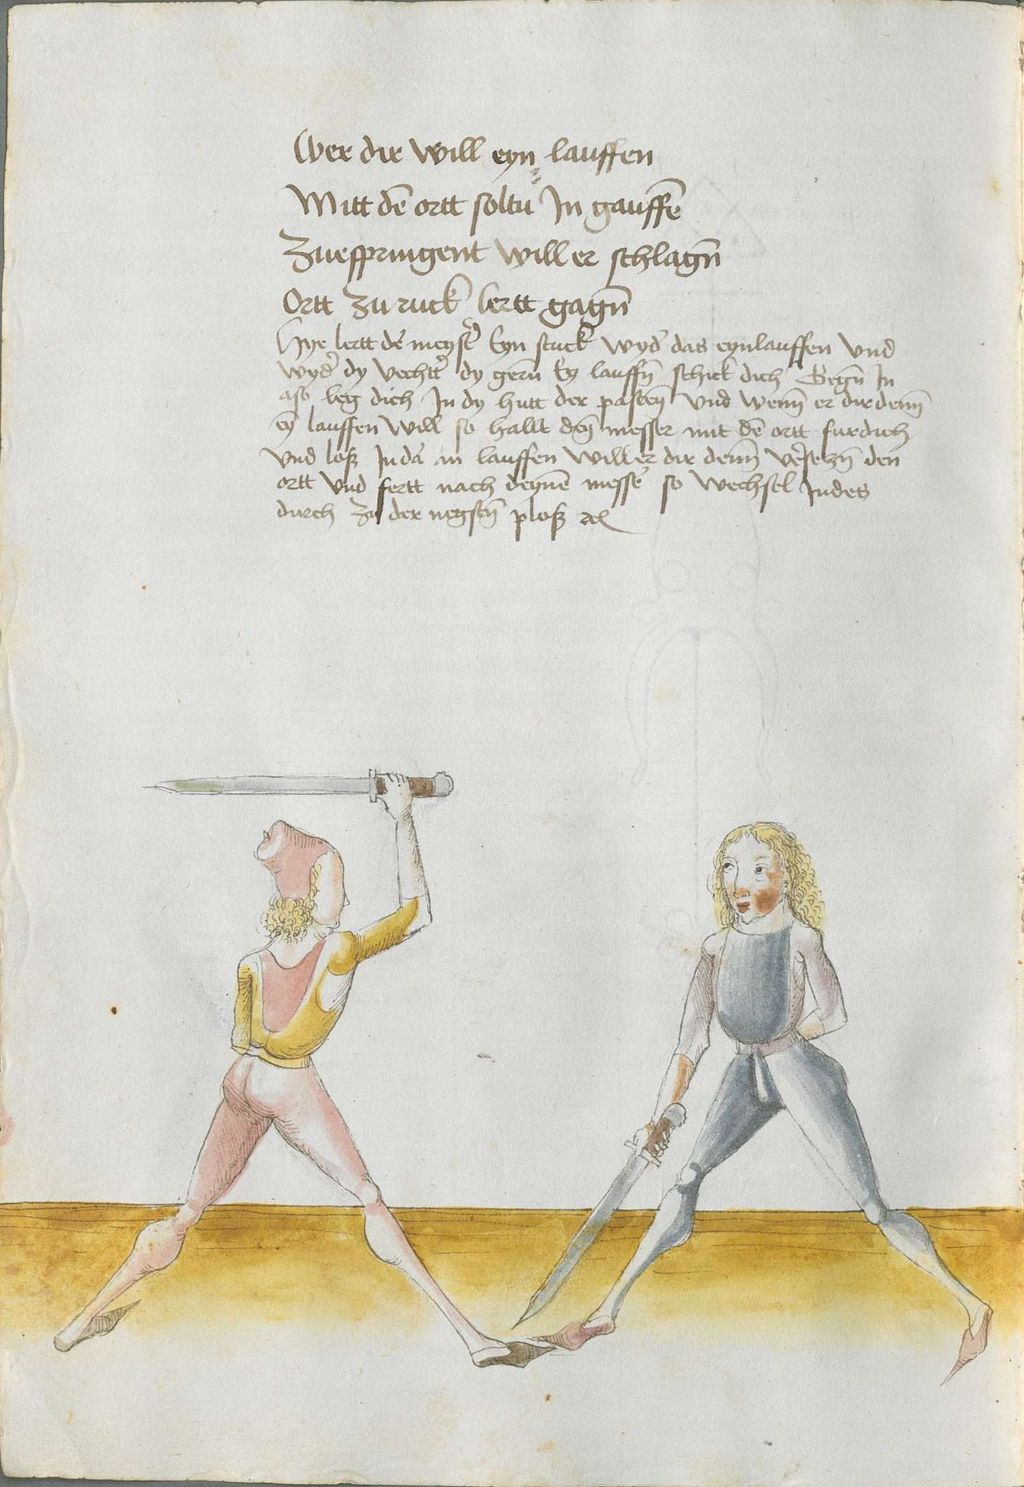 Wer dir will eyn lauffen
Mitt dē ortt soltu In gauffē
Zuespringent will er schlagn̄
Ortt zu ruck lertt gagn̄
Hye lertt der meyster Eyn stuck wyd' das eynlauffen vnd
wyd' dy vechtt' dy gern̄ Ey lauffn̄ schick dich Gegn̄ In
also leg dich In dy hutt der pasteyn̄ vnd wenn̄ er dir denn̄
eȳ lauffen will so hallt deȳ messer mit dē ortt fur dich
vnd loß In dar an lauffen will er dir denn̄ v'setzn̄ den
ortt vnd fertt nach deynē messe' so wechsel Indes
durch zu der negstn̄ ploß